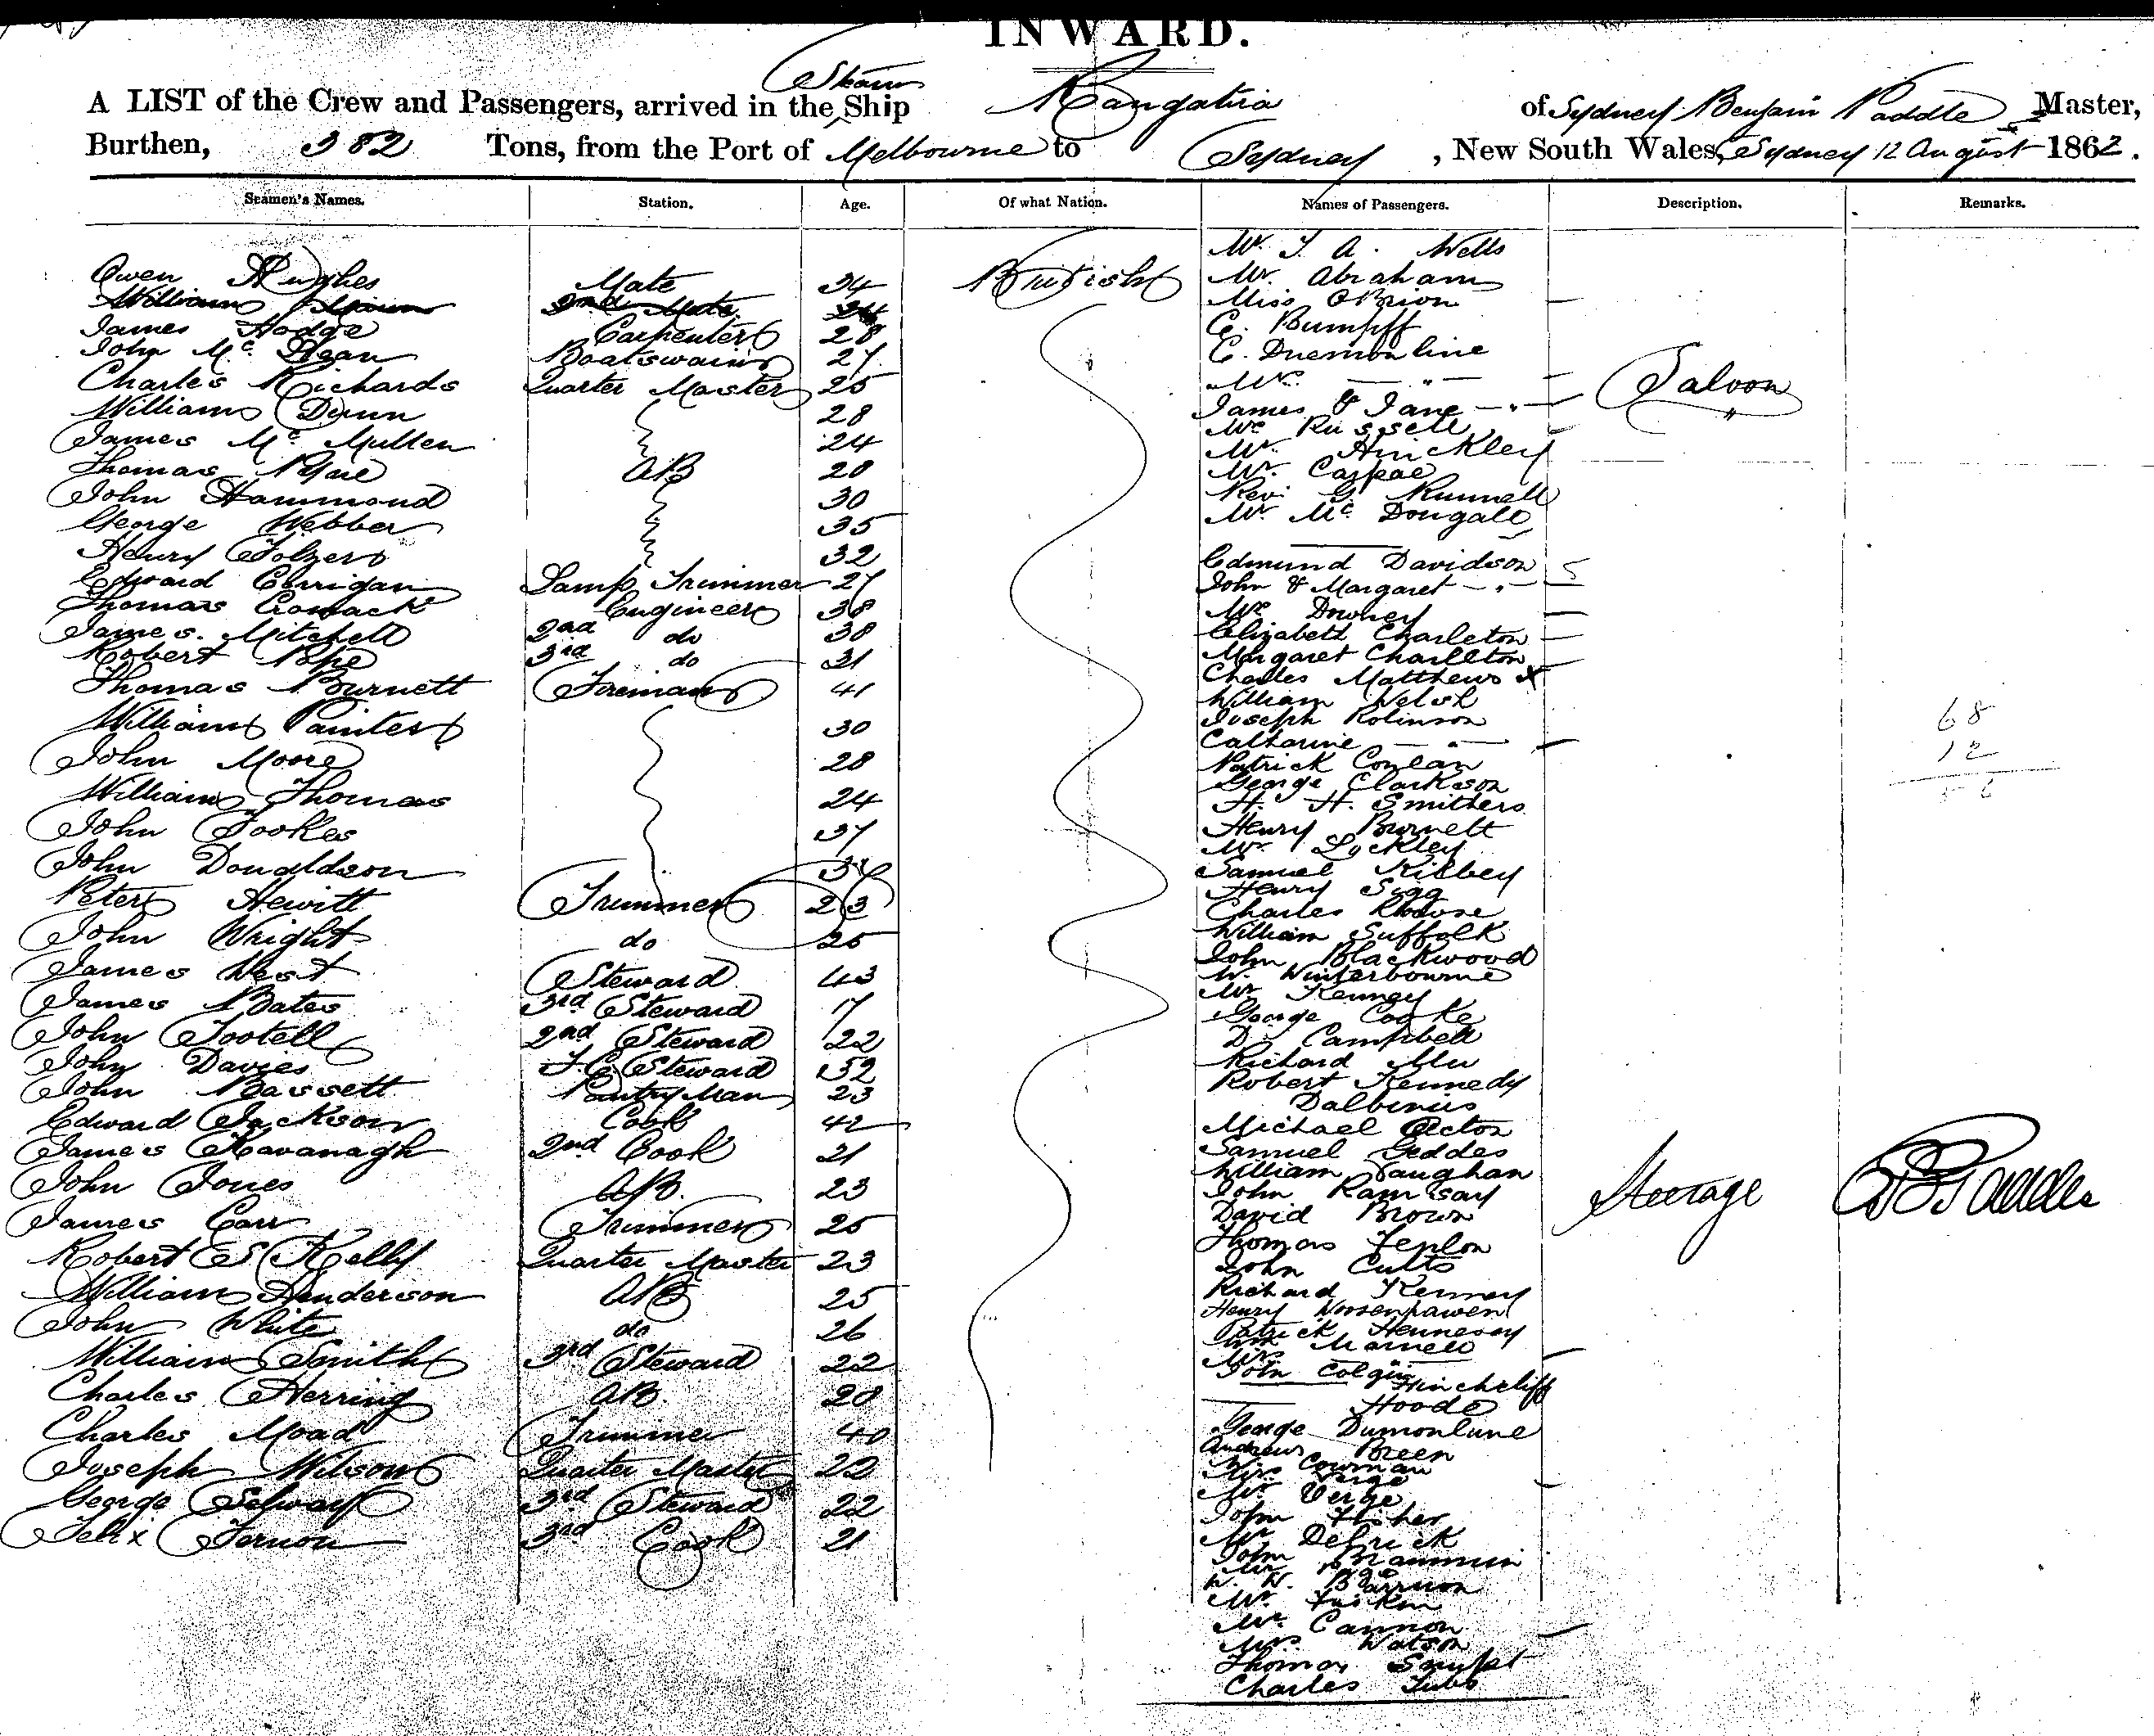 INWARD.
Steam
A LIST of the Crew and Passengers, arrived in the Ship Rangatira of Sydney Benjamin Paddle Master,
Burthen, 382 Tons, from the Port of Melbourne to Sydney, New South Wales, Sydney 12 August 1862.
Seamen's Names. Station. Age. Of what Nation. Names of Passengers. Description. Remarks.
Owen Hughes Mate 34 British
William 2nd Mate
James Hodge Carpenter 28
John Mc Boatswain 27
Charles Richards Quarter Master 25
William Dunn 28
James Mc Mullen 24
Thomas AB 28
John Hammond 30
George Webber 35
Henry 32
Edward Corrigan Lamp Trimmer 27
Thomas Engineer 38
James Mitchell 2nd do 38
Robert Pope 3rd do 31
Thomas Burnett Fireman 41
William Painter 30
John Moore 28
William Thomas 24
John Tookes 37
John Donaldson
Peter Hewitt Trimmer 23
John Wright do 25
James West Steward 43
James Bates 3rd Steward 17
John Tootell 2nd Steward 22
John Davies F.C. Steward 32
John Bassett Pantry Man 23
Edward Jackson Cook 42
James Kavanagh 2nd Cook 21
John Jones AB. 23
James Carr Trimmer 25
Robert E S Kelly Quarter Master 23
William Henderson AB 25
John White do 26
William Smith 3rd Steward 22
Charles Herring AB. 20
Charles Moad Trimmer 40
Joseph Wilson Quarter Master 22
George Selway 3rd Steward 22
Felix Fernon 3rd Cook 21
Mr. T. A. Wells
Mr. Abraham
Miss OBrion
C. Bumpff
E.
Mrs. — " —
James & Jane — " —
Mr Russell
Mr. Hinckley
Mr. Caspae
Rev. G. Runnell
Mr. Mc Dougall
Saloon
"
Edmund Davidson 5
John & Margaret — " —
Mrs Downey
Elizabeth Charleton
Margaret Charleton
Charles Matthews x
William Welsh
Joseph Robinson
Catharine — " —
Patrick Conlan
George Clarkson
H. H. Smithers
Henry Burnett
Mr Lockley
Samuel Kilbey
Henry Sigg
Charles Rhouse
William Suffolk
John Blackwood
W. Winterbourne
Mr Kenney
George Cooke
D. Campbell
Richard
Robert Kennedy
Dalbinius
Michael Acton
Samuel Geddes
William Vaughan
John Ramsay
David Brown
Thomas Fenlon
John Cutts
Richard Kenney
Henry
Patrick Hennessy
Wm Marnell
Mrs —
John Colgin
Hinchcliff
Hoode
George Dumonlune
Andrew Breen
Mrs Cowman
Verge
Mr Verge
John Fisher
Mr Delrick
John Brammin
Mr Page
W. W.
Mr.
Mr. Cannon
Mrs. Watson
Thomas
Charles Tubb
Steerage
S B Paddle
68
12
56